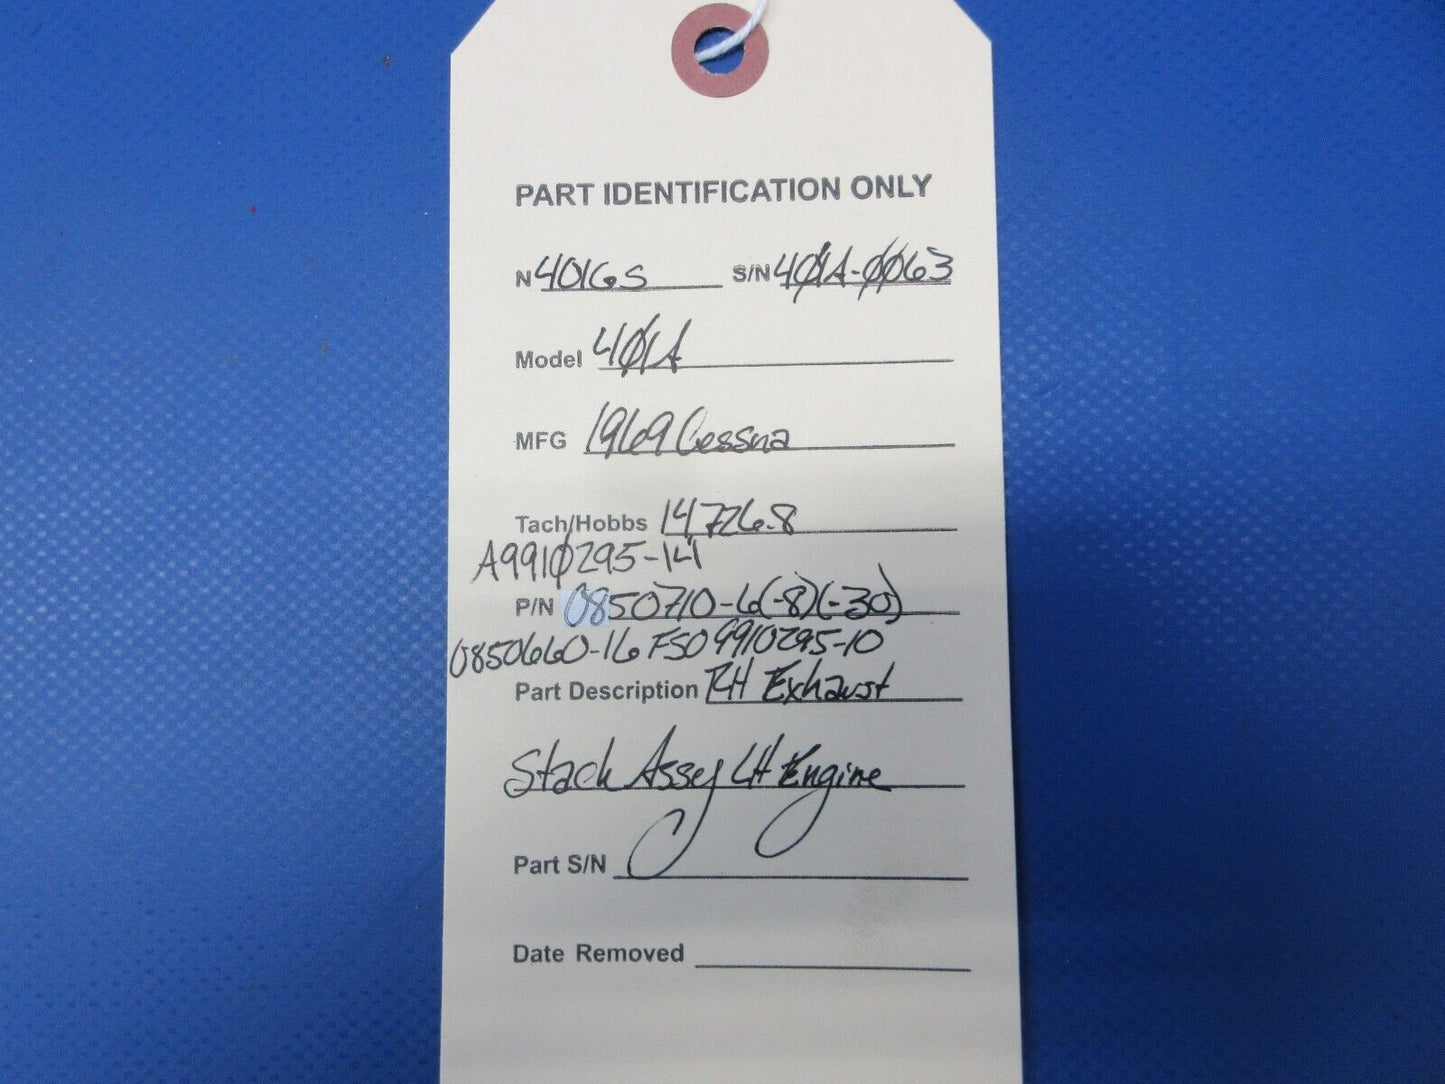 PART IDENTIFICATION ONLY
N 4016S S/N 401A-0063
Model 401A
MFG 1969 Cessna
Tach/Hobbs 14726.8
A9910295-14
P/N 0850710-6(-8)(-30)
0850660-16 FSO 9910295-10
Part Description RH Exhaust
Stack Assy LH Engine
Part S/N
Date Removed